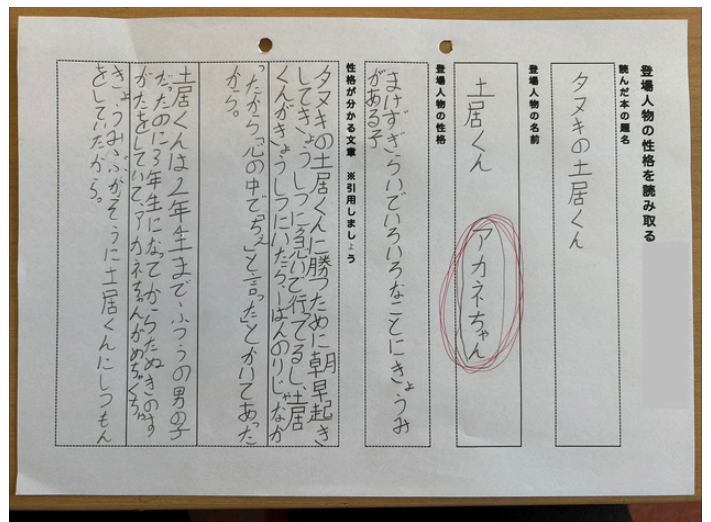 登場人物の性格を読み取る
読んだ本の題名
タヌキの土居くん
登場人物の名前
土居くん
アカネちゃん
登場人物の性格
まけずぎらいでいろいろなことにきょうみ
がある子
性格が分かる文章　※引用しましょう
タヌキの土居くんに勝つために朝早起き
してきょうしつに急いで行ってるし、土居
くんがきょうしつにいたら、一ばんのりじゃなか
ったから「心の中で「ちぇ」と言った」とかいてあった
から。
土居くんは2年生まで、ふつうの男の子
だったのに3年生になってからたぬきのす
がたをしていて、アカネちゃんがめちゃくちゃ
きょうみぶかそうに土居くんにしつもん
をしていたから。